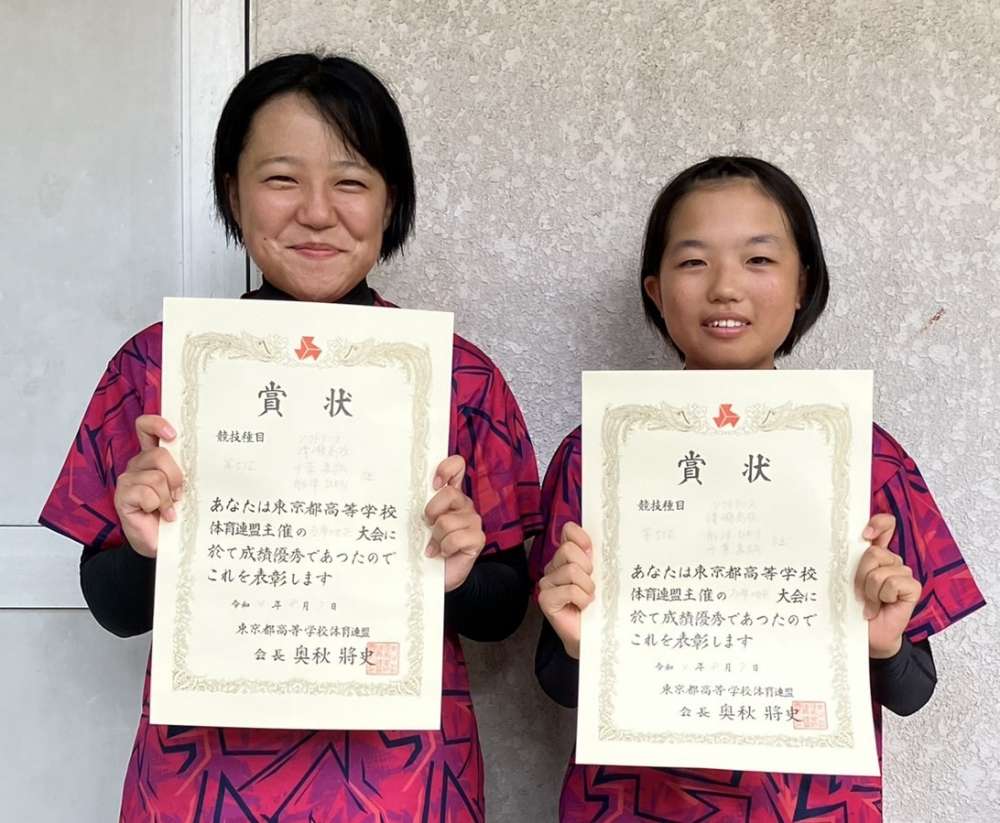 賞状
競技種目
あなたは東京都高等学校
体育連盟主催の 大会に
於て成績優秀であつたので
これを表彰します
令和 年 月 日
東京都高等学校体育連盟
会長 奥秋 將史
賞状
競技種目
あなたは東京都高等学校
体育連盟主催の 大会に
於て成績優秀であつたので
これを表彰します
令和 年 月 日
東京都高等学校体育連盟
会長 奥秋 將史